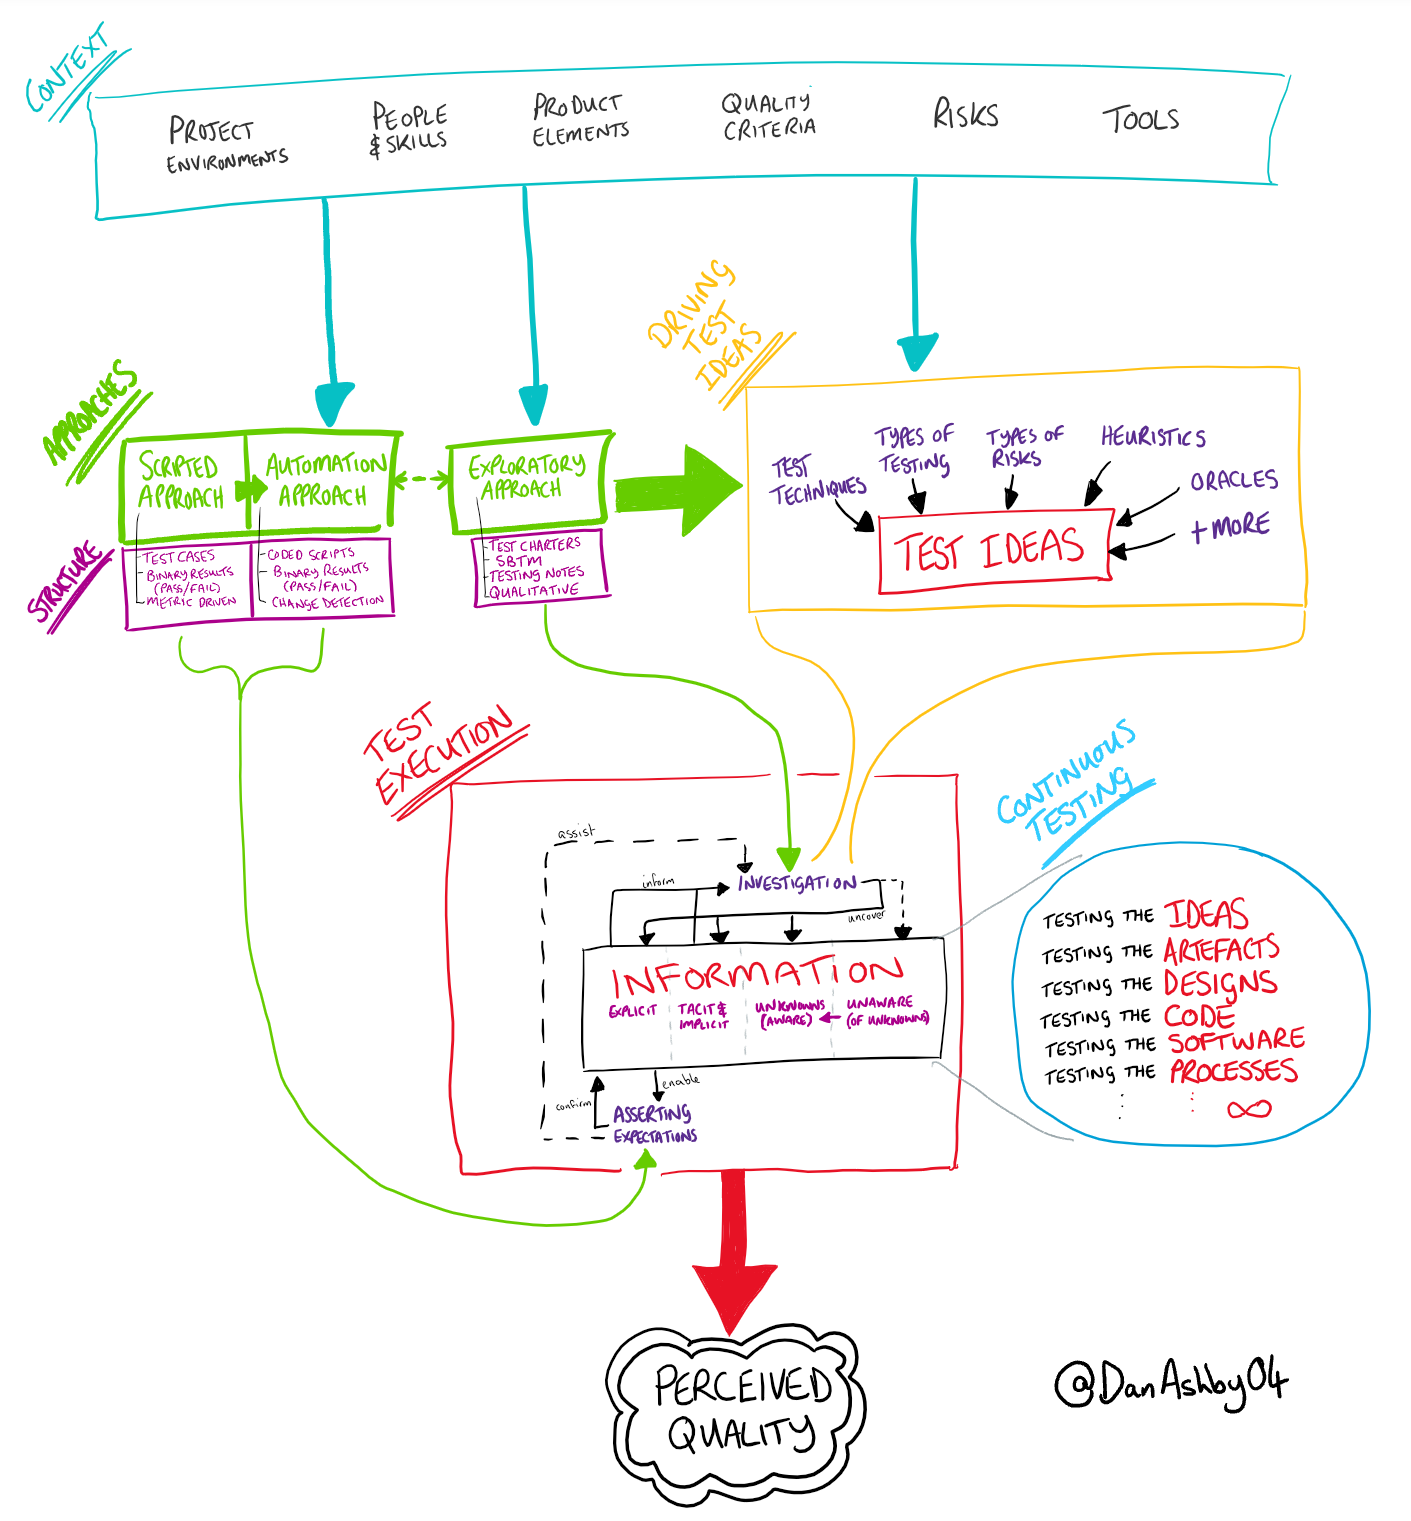 CONTEXT
PROJECT
ENVIRONMENTS
PEOPLE
& SKILLS
PRODUCT
ELEMENTS
QUALITY
CRITERIA
RISKS
TOOLS
DRIVING
TEST
IDEAS
APPROACHES
SCRIPTED
APPROACH
AUTOMATION
APPROACH
EXPLORATORY
APPROACH
STRUCTURE
- TEST CASES
- BINARY RESULTS
(PASS/FAIL)
- METRIC DRIVEN
- CODED SCRIPTS
- BINARY RESULTS
(PASS/FAIL)
- CHANGE DETECTION
- TEST CHARTERS
- SBTM
- TESTING NOTES
- QUALITATIVE
TEST
TECHNIQUES
TYPES OF
TESTING
TYPES OF
RISKS
HEURISTICS
ORACLES
+ MORE
TEST IDEAS
TEST
EXECUTION
assist
inform
INVESTIGATION
uncover
INFORMATION
EXPLICIT
TACIT &
IMPLICIT
UNKNOWNS
(AWARE)
UNAWARE
(OF UNKNOWNS)
confirm
enable
ASSERTING
EXPECTATIONS
CONTINUOUS
TESTING
TESTING THE IDEAS
TESTING THE ARTEFACTS
TESTING THE DESIGNS
TESTING THE CODE
TESTING THE SOFTWARE
TESTING THE PROCESSES
⋮ ⋮ ∞
PERCEIVED
QUALITY
@DanAshby04